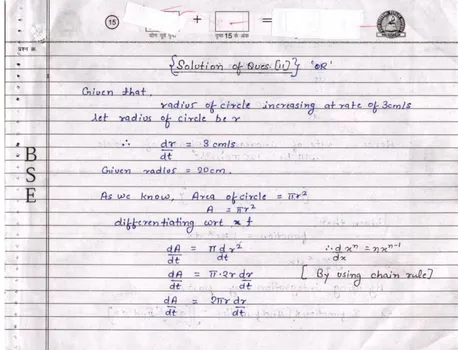 15
+
=
योग पूर्व पृष्ठ
पृष्ठ 15 के अंक
प्रश्न क्र.
{Solution of Ques. [11]} 'OR'
Given that,
radius of circle increasing at rate of 3cm/s
let radius of circle be r
∴ dr/dt = 3 cm/s
Given radius = 20cm.
As we know, Area of circle = πr²
A = πr²
differentiating wrt t
dA/dt = π d r²/dt ∴ d/dx xⁿ = nxⁿ⁻¹
dA/dt = π·2r dr/dt [By using chain rule]
dA/dt = 2πr dr/dt
B
S
E